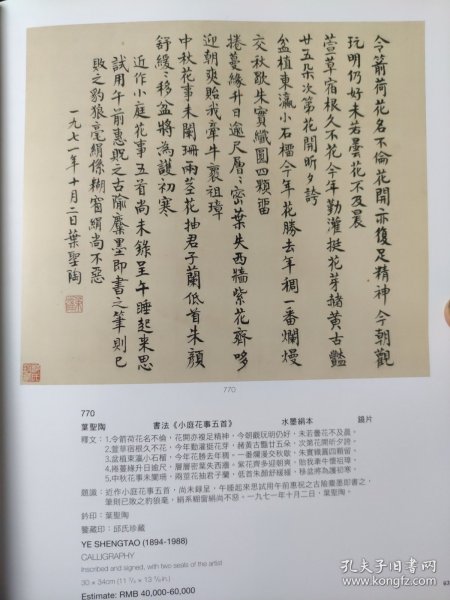 令箭荷花名不倫花開亦復足精神今朝觀
玩明仍好未若曇花不及晨
萱草宿根久不花今年勤灌挺花芽赭黃古豔
廿五朵次第花開昕夕誇
盆植東瀛小石榴今年花勝去年稠一番爛熳
交秋歇朱實纖圓四顆留
捲蔓緣升日逾尺層層密葉失西牆紫花齊哆
迎朝爽貽我牽牛裹祖璋
中秋花事未闌珊兩莖花抽君子蘭低首朱顏
舒緩緩移盆將為護初寒
近作小庭花事五首尚未錄呈午睡起來思
試用午前惠貺之古隃麋墨即書之筆則已
敗之豹狼毫絹係糊窗絹尚不惡
一九七一年十月二日葉聖陶
770
770
葉聖陶 書法《小庭花事五首》 水墨絹本 鏡片
釋文：1.令箭荷花名不倫，花開亦複足精神，今朝觀玩明仍好，未若曇花不及晨。
2.萱草宿根久不花，今年勤灌挺花芽，赭黃古豔廿五朵，次第花開昕夕誇。
3.盆植東瀛小石榴，今年花勝去年稠，一番爛漫交秋歇，朱實纖圓四顆留。
4.捲蔓緣升日逾尺，層層密葉失西牆，紫花齊多迎朝爽，貽我牽牛懷祖璋。
5.中秋花事未闌珊，兩莖花抽君子蘭，低首朱顏舒緩緩，移盆將為護初寒。
題識：近作小庭花事五首，尚未錄呈，午睡起來思試用午前惠祝之古隃麋墨即書之，
筆則已敗之豹狼毫，絹系糊窗絹尚不惡。一九七一年十月二日，葉聖陶。
鈐印：葉聖陶
鑒藏印：邱氏珍藏
YE SHENGTAO (1894-1988)
CALLIGRAPHY
Inscribed and signed, with two seals of the artist
30 × 34cm (11 3/4 × 13 3/8 in.)
Estimate: RMB 40,000-60,000
孔夫子旧书网